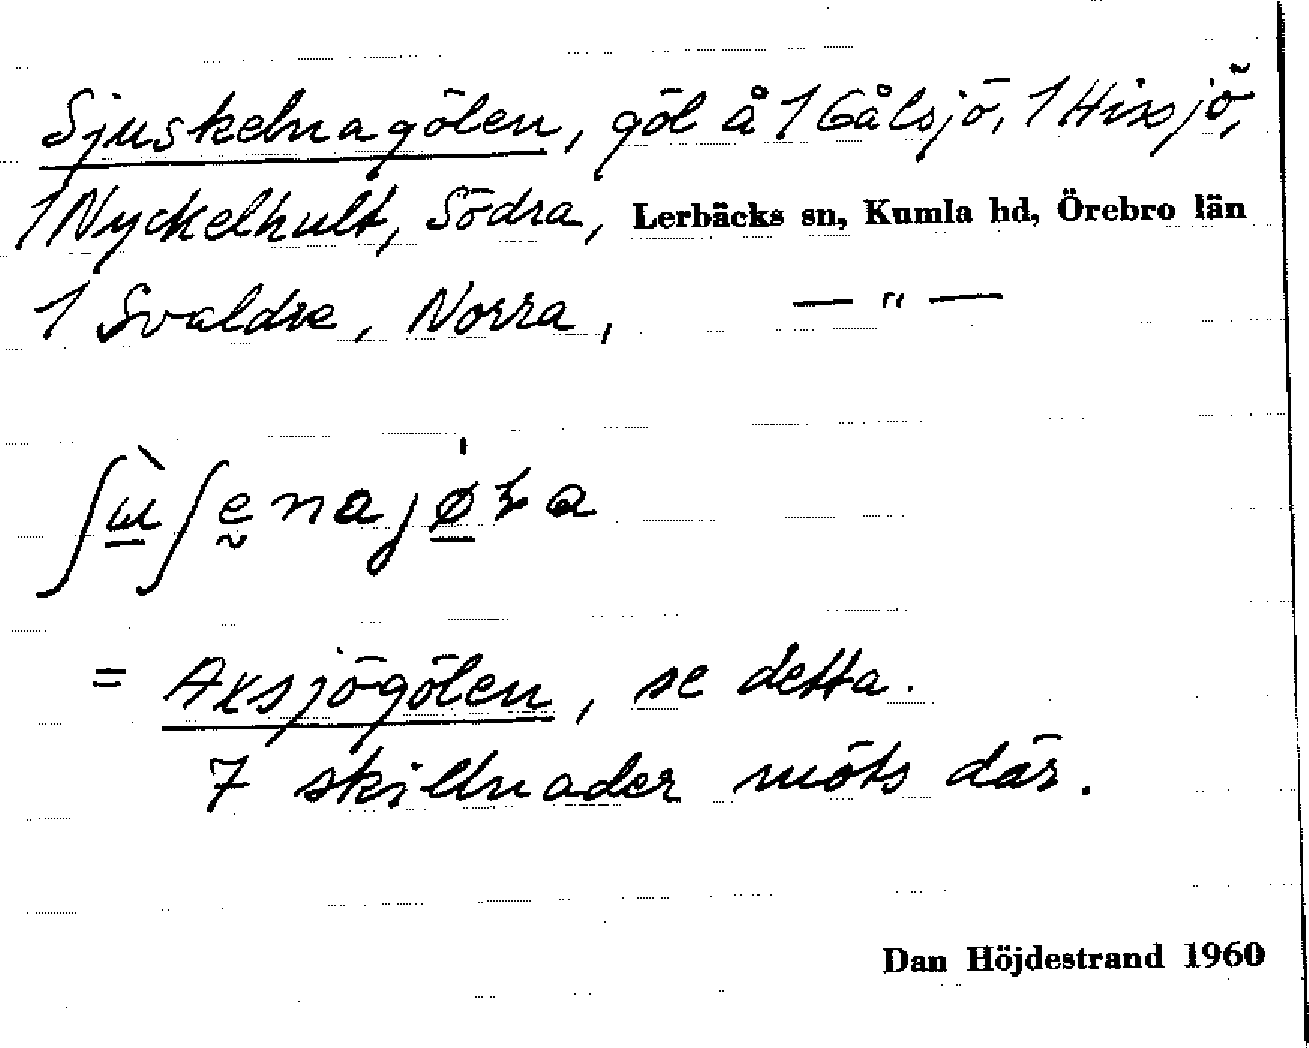 Sjuskelnagölen, göl å 1 Gålsjö, 1 Hissjö,
1 Nyckelhult, Södra, Lerbäcks sn, Kumla hd, Örebro län
1 Svaldre, Norra, — " —
= Axsjögölen, se detta.
7 skillnader möts där.
Dan Höjdestrand 1960